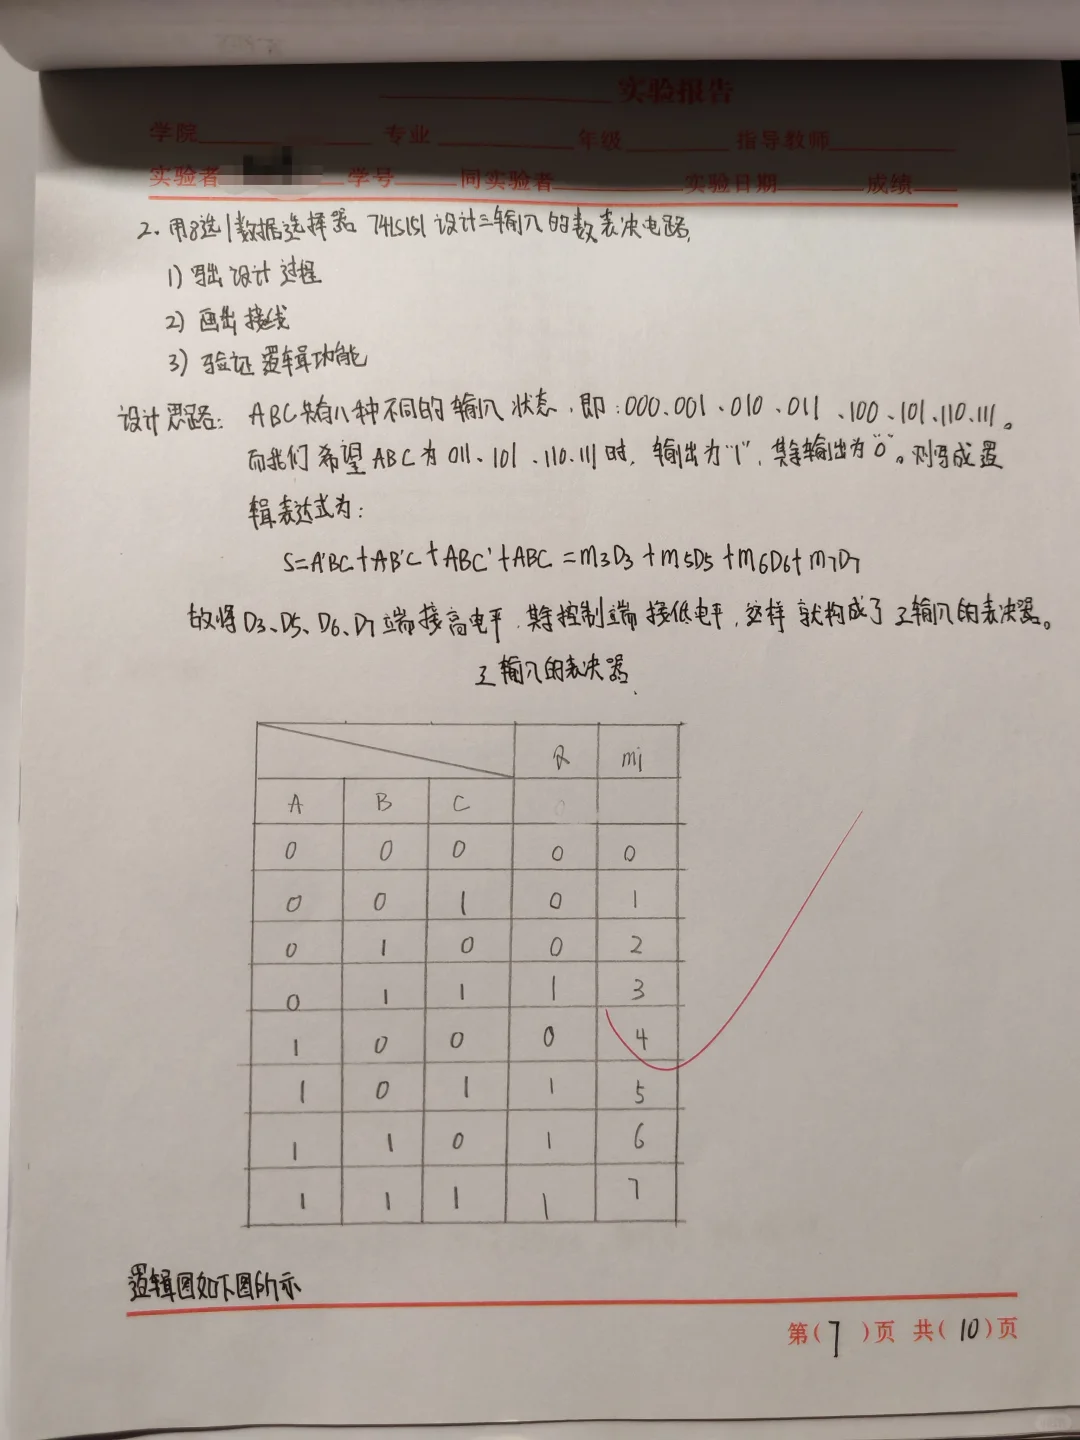 实验报告
学院 专业 年级 指导教师
实验者 学号 同实验者 实验日期 成绩
2. 用8选1数据选择器 74LS151 设计三输入的数表决电路.
1) 写出设计过程
2) 画出接线
3) 验证逻辑功能
设计思路: ABC共有八种不同的输入状态, 即: 000、001、010、011、100、101、110、111。
而我们希望ABC为 011、101、110、111时, 输出为“1”, 其余输出为“0”。则写成逻
辑表达式为:
S=A'BC+AB'C+ABC'+ABC=m3D3+m5D5+m6D6+m7D7
故将D3、D5、D6、D7端接高电平, 其余控制端接低电平, 这样就构成了三输入的表决器。
三输入的表决器.
mi
A B C
0 0 0 0 0
0 0 1 0 1
0 1 0 0 2
0 1 1 1 3
1 0 0 0 4
1 0 1 1 5
1 1 0 1 6
1 1 1 1 7
逻辑图如下图所示
第(7)页 共(10)页